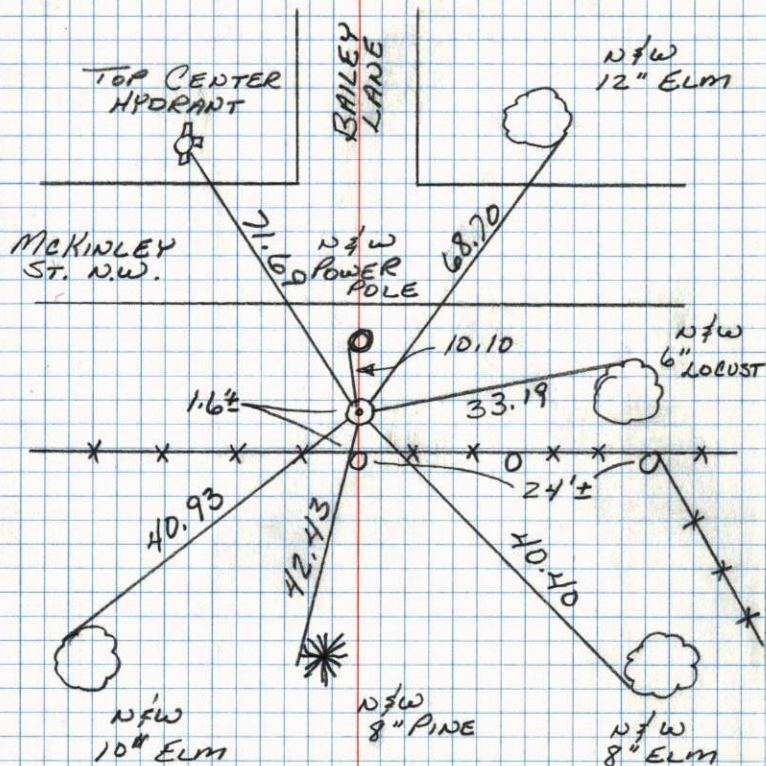 BAILEY
LANE
TOP CENTER
HYDRANT
N&W
12" ELM
McKINLEY
ST. N.W.
71.69
N&W
POWER
POLE
68.70
10.10
N&W
6" LOCUST
1.6'±
33.19
24'±
40.93
42.43
40.40
N&W
10" ELM
N&W
8" PINE
N&W
8" ELM